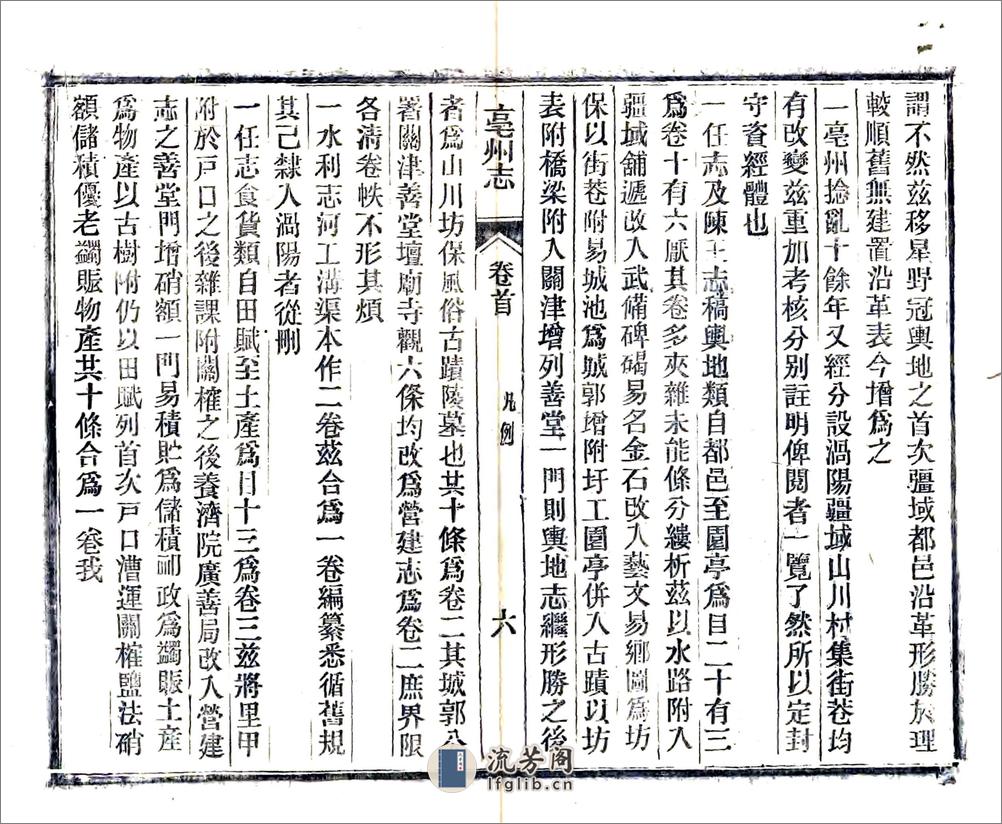 謂不然兹移星野冠輿地之首次疆域都邑沿革形勝於理
較順舊無建置沿革表今增爲之
一亳州捻亂十餘年又經分設渦陽疆域山川村集街巷均
有改變兹重加考核分别註明俾閱者一覽了然所以定封
守資經體也
一任志及陳王志稿輿地類自都邑至園亭爲目二十有三
爲卷十有六厭其卷多夾雜未能條分縷析兹以水路附入
疆域舖遞改入武備碑碣易名金石改入藝文易鄉圖爲坊
保以街巷附易城池爲城郭增附圩工園亭併入古蹟以坊
表附橋梁附入關津增列善堂一門則輿地志繼形勝之後
亳州志
卷首
凡例
六
者爲山川坊保風俗古蹟陵墓也共十條爲卷二其城郭公
署關津善堂壇廟寺觀六條均改爲營建志爲卷二庶界限
各清卷帙不形其煩
一水利志河工溝渠本作二卷兹合爲一卷編纂悉循舊規
其已隸入渦陽者從刪
一任志食貨類自田賦至土產爲目十三爲卷三兹將里甲
附於戸口之後雜課附關榷之後養濟院廣善局改入營建
志之善堂門增硝額一門易積貯爲儲積𠜂政爲蠲賑土產
爲物產以古樹附仍以田賦列首次戸口漕運關榷鹽法硝
額儲積優老蠲賑物產共十條合爲一卷我
流芳阁
lfglib.cn